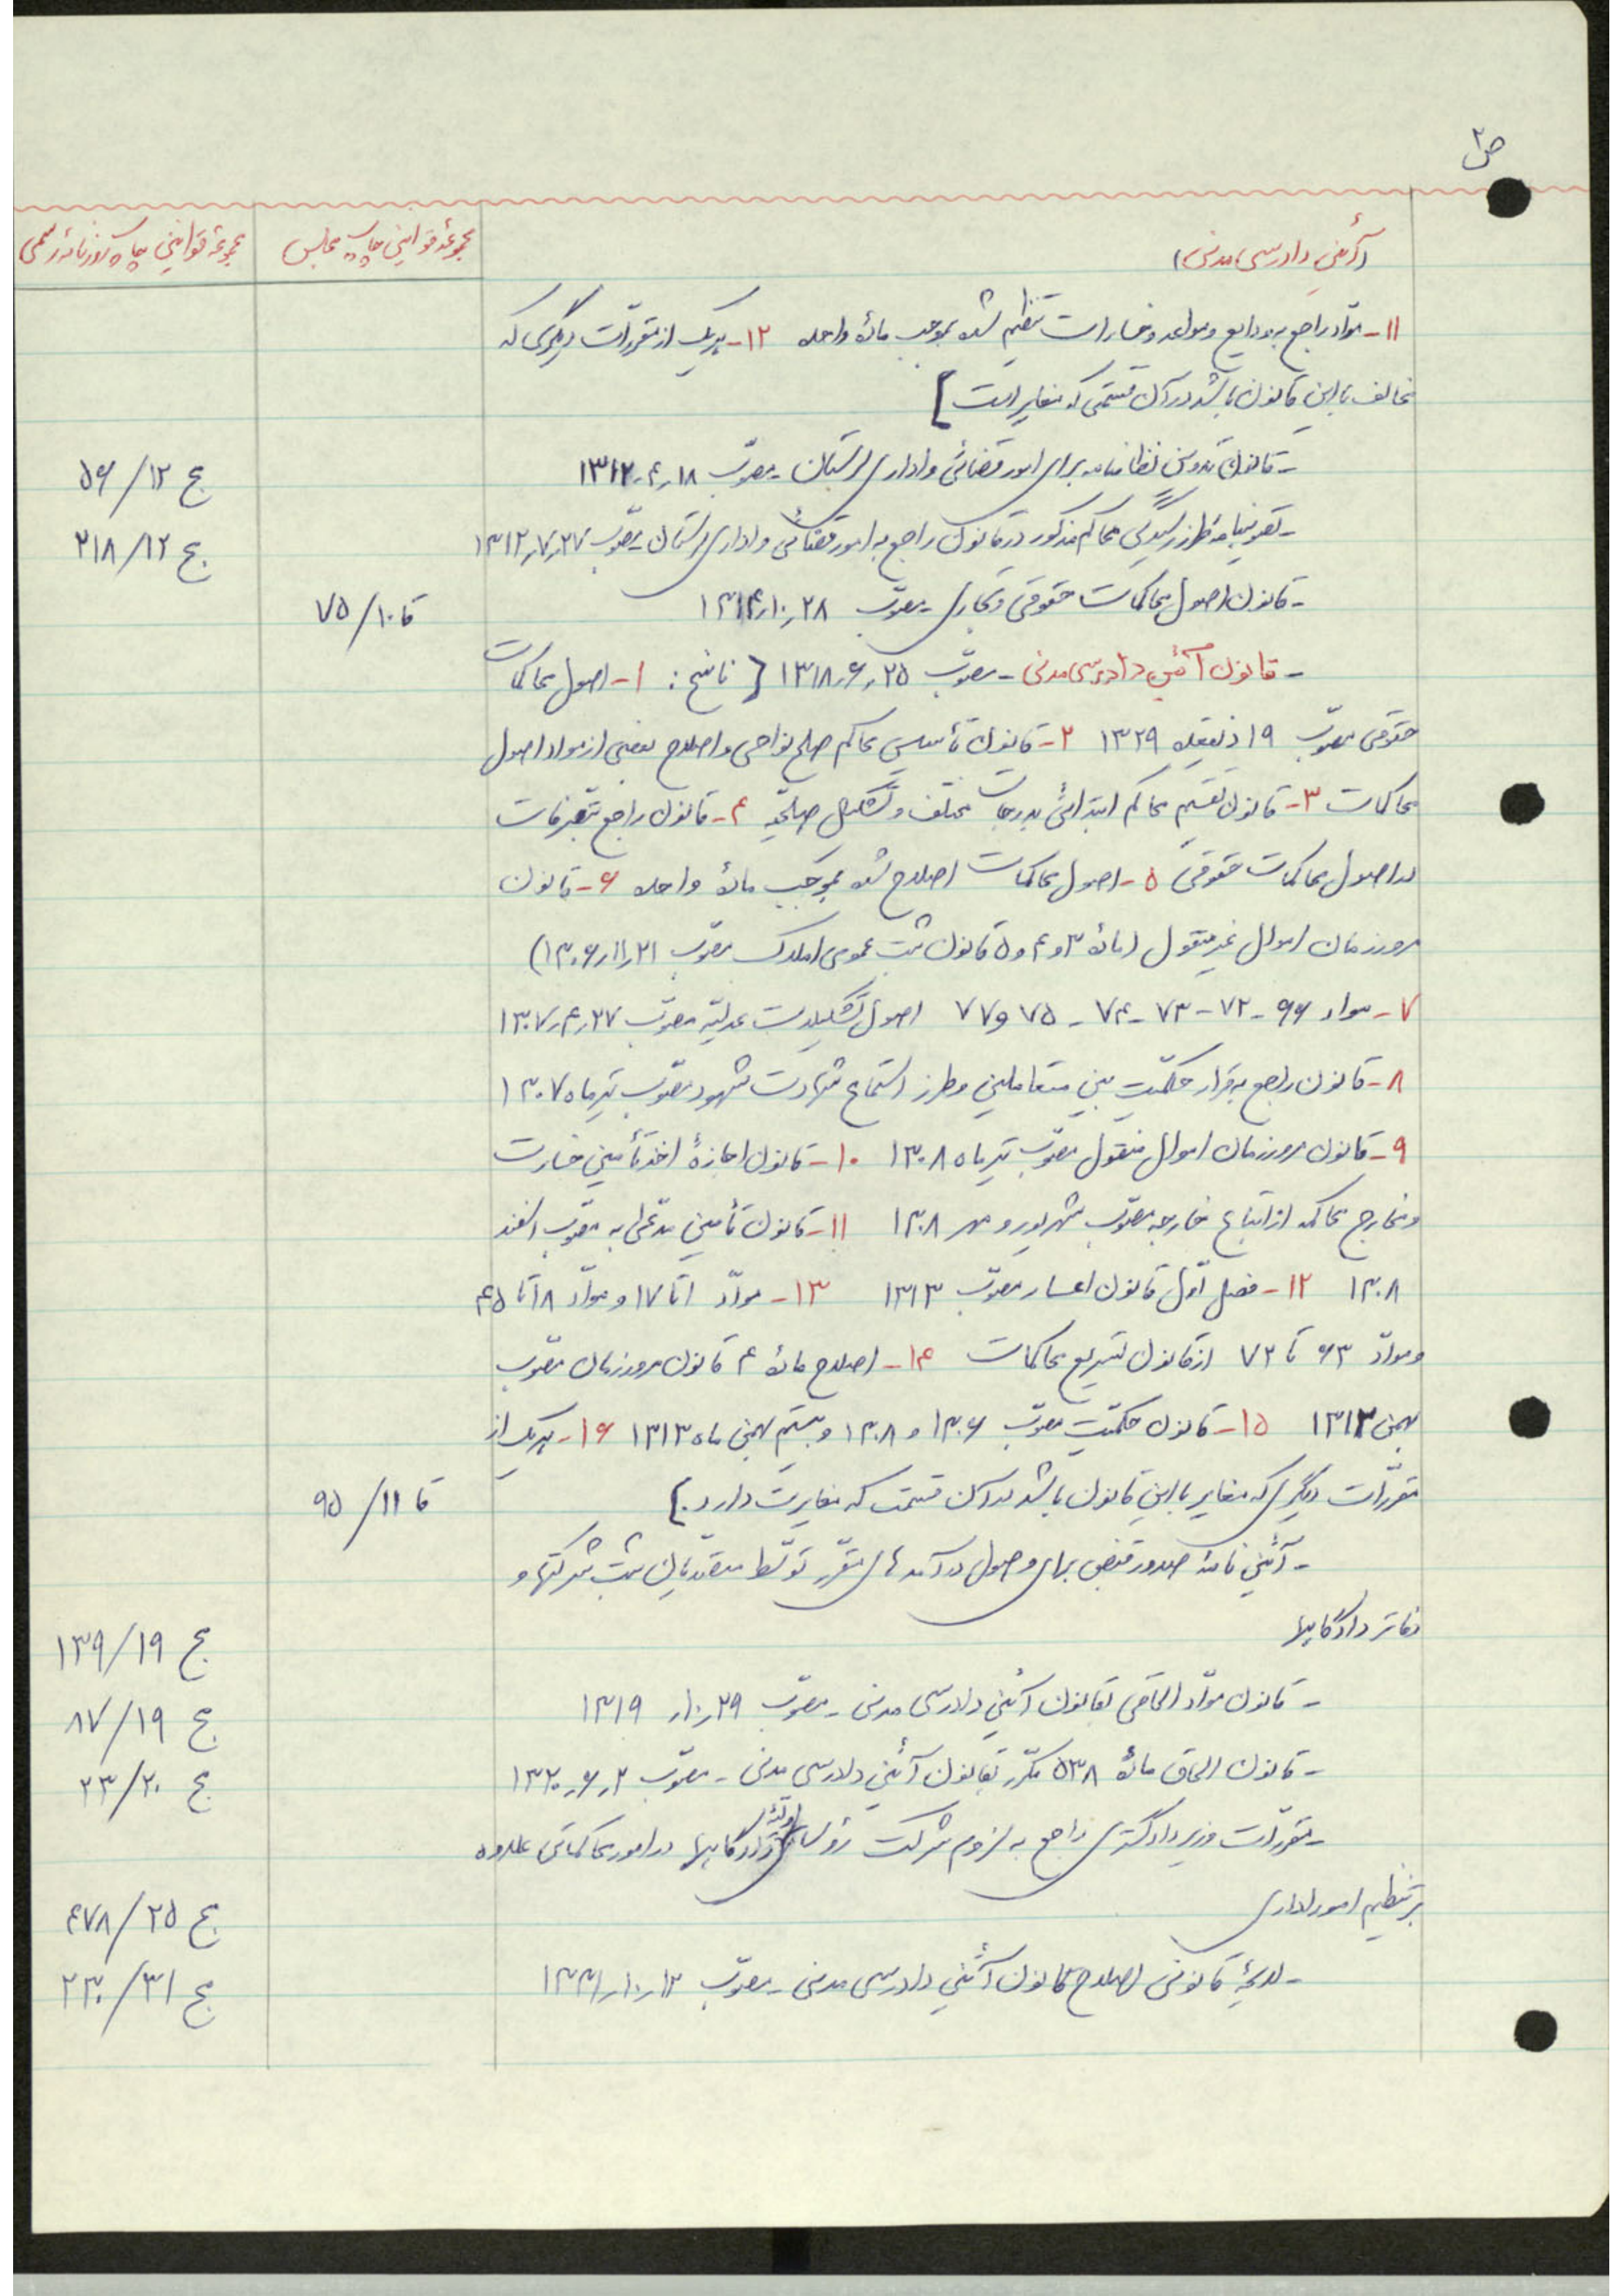 ص۲
(آئین دادرسی مدنی) مجموعهٔ قوانین چاپ مجلس مجموعهٔ قوانین چاپ روزنامهٔ رسمی
۱۱- موّاد راجع به ودایع و مواعد و خسارات تنظیم شده بموجب مادهٔ واحده ۱۲- هریک از مقررّات دیگری که
مخالف با این قانون باشد در آن قسمتی که مغایر است]
- قانون تدوین نظامنامه برای امور قضائی و اداری لرستان - مصوّب ۱۸ر۴ر۱۳۱۲ ج ۱۲/ ۵۶
- تصویبنامهٔ طرز رسیدگی محاکم مذکور در قانون راجع به امور قضائی و اداری لرستان - مصوّب ۲۷ر۷ر۱۳۱۲ ج ۱۲/ ۲۱۸
- قانون اصول محاکمات حقوقی و تجاری - مصوّب ۲۸ر۱۰ر۱۳۱۴ قا ۱۰/ ۷۵
- قانون آئین دادرسی مدنی - مصوّب ۲۵ر۶ر۱۳۱۸ { ناسخ : ۱- اصول محاکمات
حقوقی مصوّب ۱۹ ذیقعده ۱۳۲۹ ۲- قانون تأسیس محاکم صلح نواحی و اصلاح بعضی از مواد اصول
محاکمات ۳- قانون تقسیم محاکم ابتدائی بدرجات مختلف و تشکیل صلحیّه ۴- قانون راجع بتصرفات
در اصول محاکمات حقوقی ۵- اصول محاکمات اصلاح شده بموجب مادهٔ واحده ۶- قانون
مرور زمان اموال غیر منقول (مادهٔ ۳ و ۴ و ۵ قانون ثبت عمومی املاک مصوّب ۲۱ر۱۱ر۱۳۰۶)
۷- مواد ۶۶ - ۷۲ - ۷۳ - ۷۴ - ۷۵ و ۷۷ اصول تشکیلات عدلیّه مصوّب ۲۷ر۴ر۱۳۰۷
۸- قانون راجع بقرار حکمیّت بین متعاملین و طرز استماع شهادت شهود مصوّب تیرماه ۱۳۰۷
۹- قانون مرور زمان اموال منقول مصوّب تیرماه ۱۳۰۸ ۱۰- قانون اجازهٔ اخذ تأمین خسارت
و مخارج محاکمه از اتباع خارجه مصوّب شهریور و مهر ۱۳۰۸ ۱۱- قانون تأمین مدعّی‌به مصوّب اسفند
۱۳۰۸ ۱۲- فصل اوّل قانون اعسار مصوّب ۱۳۱۳ ۱۳- موادّ ۱ تا ۱۷ و موادّ ۱۸ تا ۴۵
و موادّ ۶۳ تا ۷۲ از قانون تسریع محاکمات ۱۴- اصلاح مادهٔ ۴ قانون مرور زمان مصوّب
بهمن ۱۳۱۳ ۱۵- قانون حکمیّت مصوّب ۱۳۰۶ و ۱۳۰۸ و بیستم بهمن ماه ۱۳۱۳ ۱۶- هریک از
مقررّات دیگری که مغایر با این قانون باشد در آن قسمت که مغایرت دارد.} قا ۱۱/ ۹۵
- آئین نامهٔ صدور قبض برای وصول درآمدهای مقرّر توسّط متصدّیان ثبت شرکتها و
دفاتر دادگاهها ج ۱۹/ ۱۳۹
- قانون موّاد الحاقی بقانون آئین دادرسی مدنی - مصوّب ۲۹ر۱۰ر ۱۳۱۹ ج ۱۹/ ۸۷
- قانون الحاق مادهٔ ۵۳۸ مکرّر بقانون آئین دادرسی مدنی - مصوّب ۲ر۶ر۱۳۲۰ ج ۲۰/ ۲۳
- مقرّرات وزیر دادگستری راجع به لزوم شرکت رؤسای اولّیهٔ دادگاهها در امور محاکماتی علاوه
بر تنظیم امور اداری ج ۲۵/ ۴۷۸
- لایحهٔ قانونی اصلاح قانون آئین دادرسی مدنی - مصوّب ۱۳ر۱۰ر۱۳۳۱ ج ۳۱/ ۲۳۰